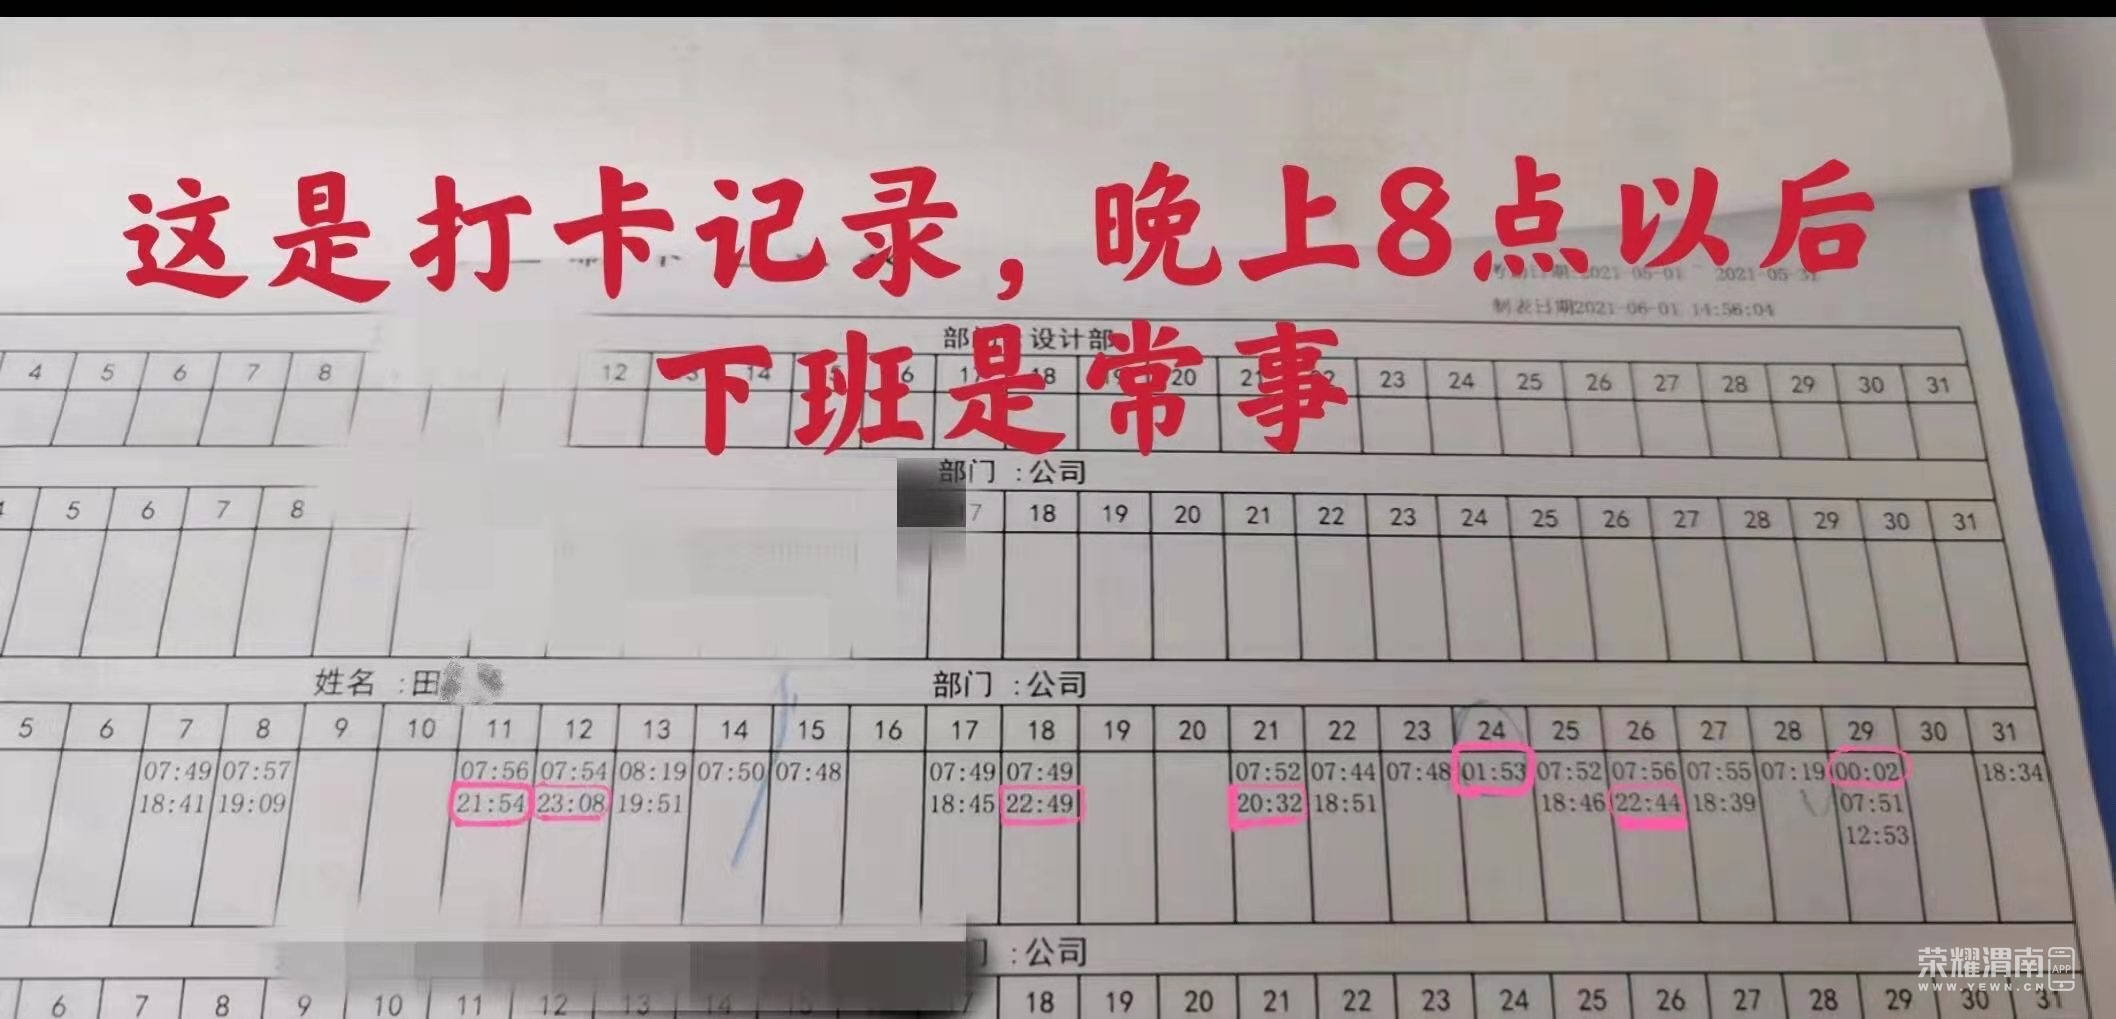 这是打卡记录，晚上8点以后
下班是常事
2021-05-01 ~ 2021-05-31
制表日期2021-06-01 14:56:04
部门 设计部
4 5 6 7 8 12 13 14 15 16 17 18 19 20 21 22 23 24 25 26 27 28 29 30 31
部门 :公司
5 6 7 8 17 18 19 20 21 22 23 24 25 26 27 28 29 30 31
姓名 :田 部门 :公司
5 6 7 8 9 10 11 12 13 14 15 16 17 18 19 20 21 22 23 24 25 26 27 28 29 30 31
07:49 07:57 07:56 07:54 08:19 07:50 07:48 07:49 07:49 07:52 07:44 07:48 01:53 07:52 07:56 07:55 07:19 00:02 18:34
18:41 19:09 21:54 23:08 19:51 18:45 22:49 20:32 18:51 18:46 22:44 18:39 07:51
12:53
:公司
6 7 8 9 10 11 12 13 14 15 17 18 19 20 21 22 23 24 25 26 27 28 29 30 31
荣耀渭南 APP
WWW.YEWN.CN